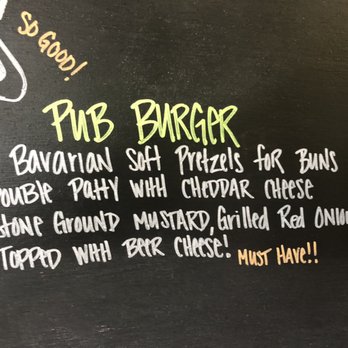 SO GOOD!
PUB BURGER
Bavarian Soft Pretzels for Buns
ouble Patty with Cheddar Cheese
Stone Ground Mustard, Grilled Red Onio
Topped with Beer Cheese! MUST HAVE!!